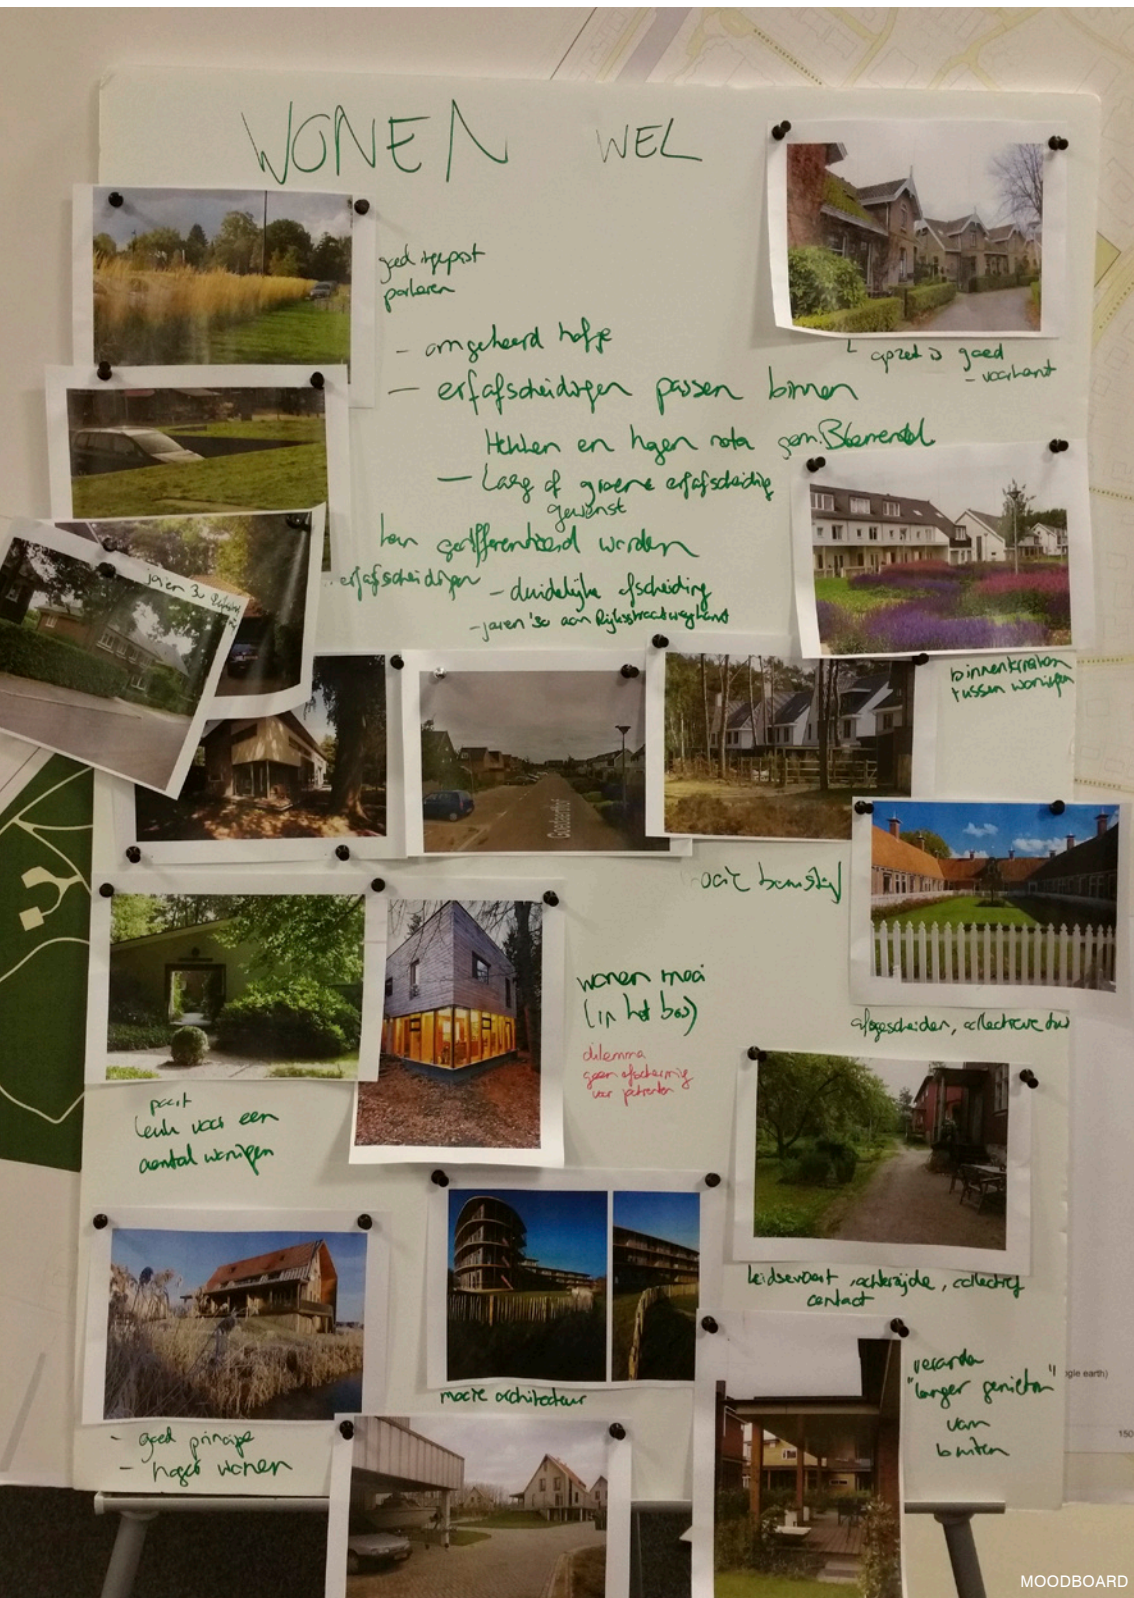 WONEN WEL
goed ingepast
parkeren
- omgekeerd hofje
- erfafscheidingen passen binnen
Hekken en hagen nota gem. Bloemendaal
- Laag of groene erfafscheiding
gewenst
kan gedifferentieerd worden
erfafscheidingen
- duidelijke afscheiding
- jaren '30 aan Rijksstraatwegkant
jaren 30
opzet is goed
- voorkant
binnenkanten
tussen woningen
Goedaerthof
afgescheiden, collectieve tuin
wonen mooi
(in het bos)
dilemma
geen afscherming
voor patienten
poort
leuk voor een
aantal woningen
Leidsevaart, achterzijde, collectief
contact
mooie architectuur
veranda
"langer genieten"
van
buiten
- goed principe
- hoger wonen
ogle earth)
150
MOODBOARD